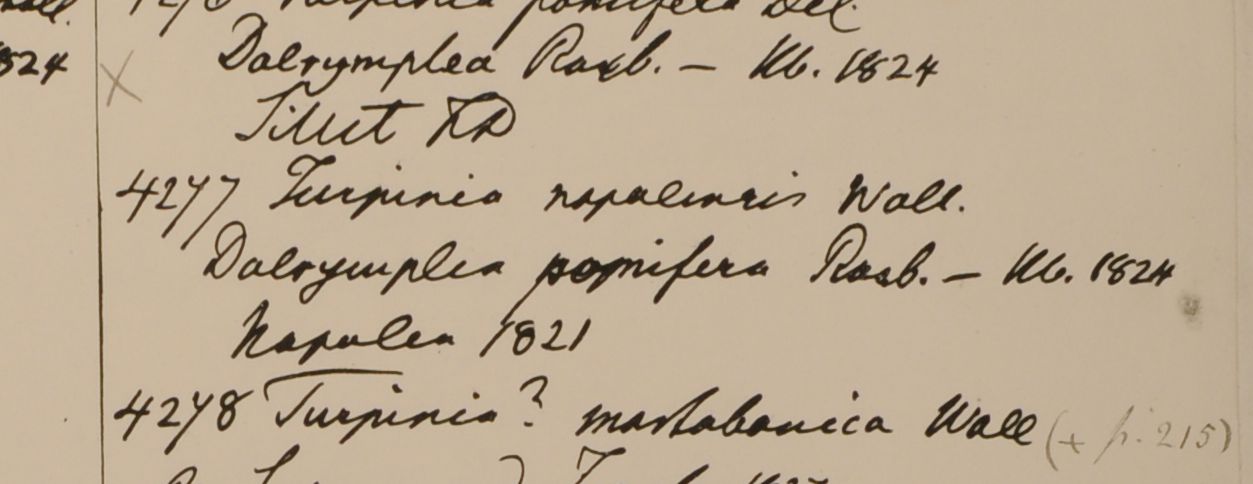 4276 Turpinia pomifera Del.
824 × Dalrymplea Roxb. – Hb. 1824
Sillet FD
4277 Turpinia napalensis Wall.
Dalrymplea pomifera Roxb. – Hb. 1824
Napalea 1821
4278 Turpinia? martabanica Wall (+ p. 215)